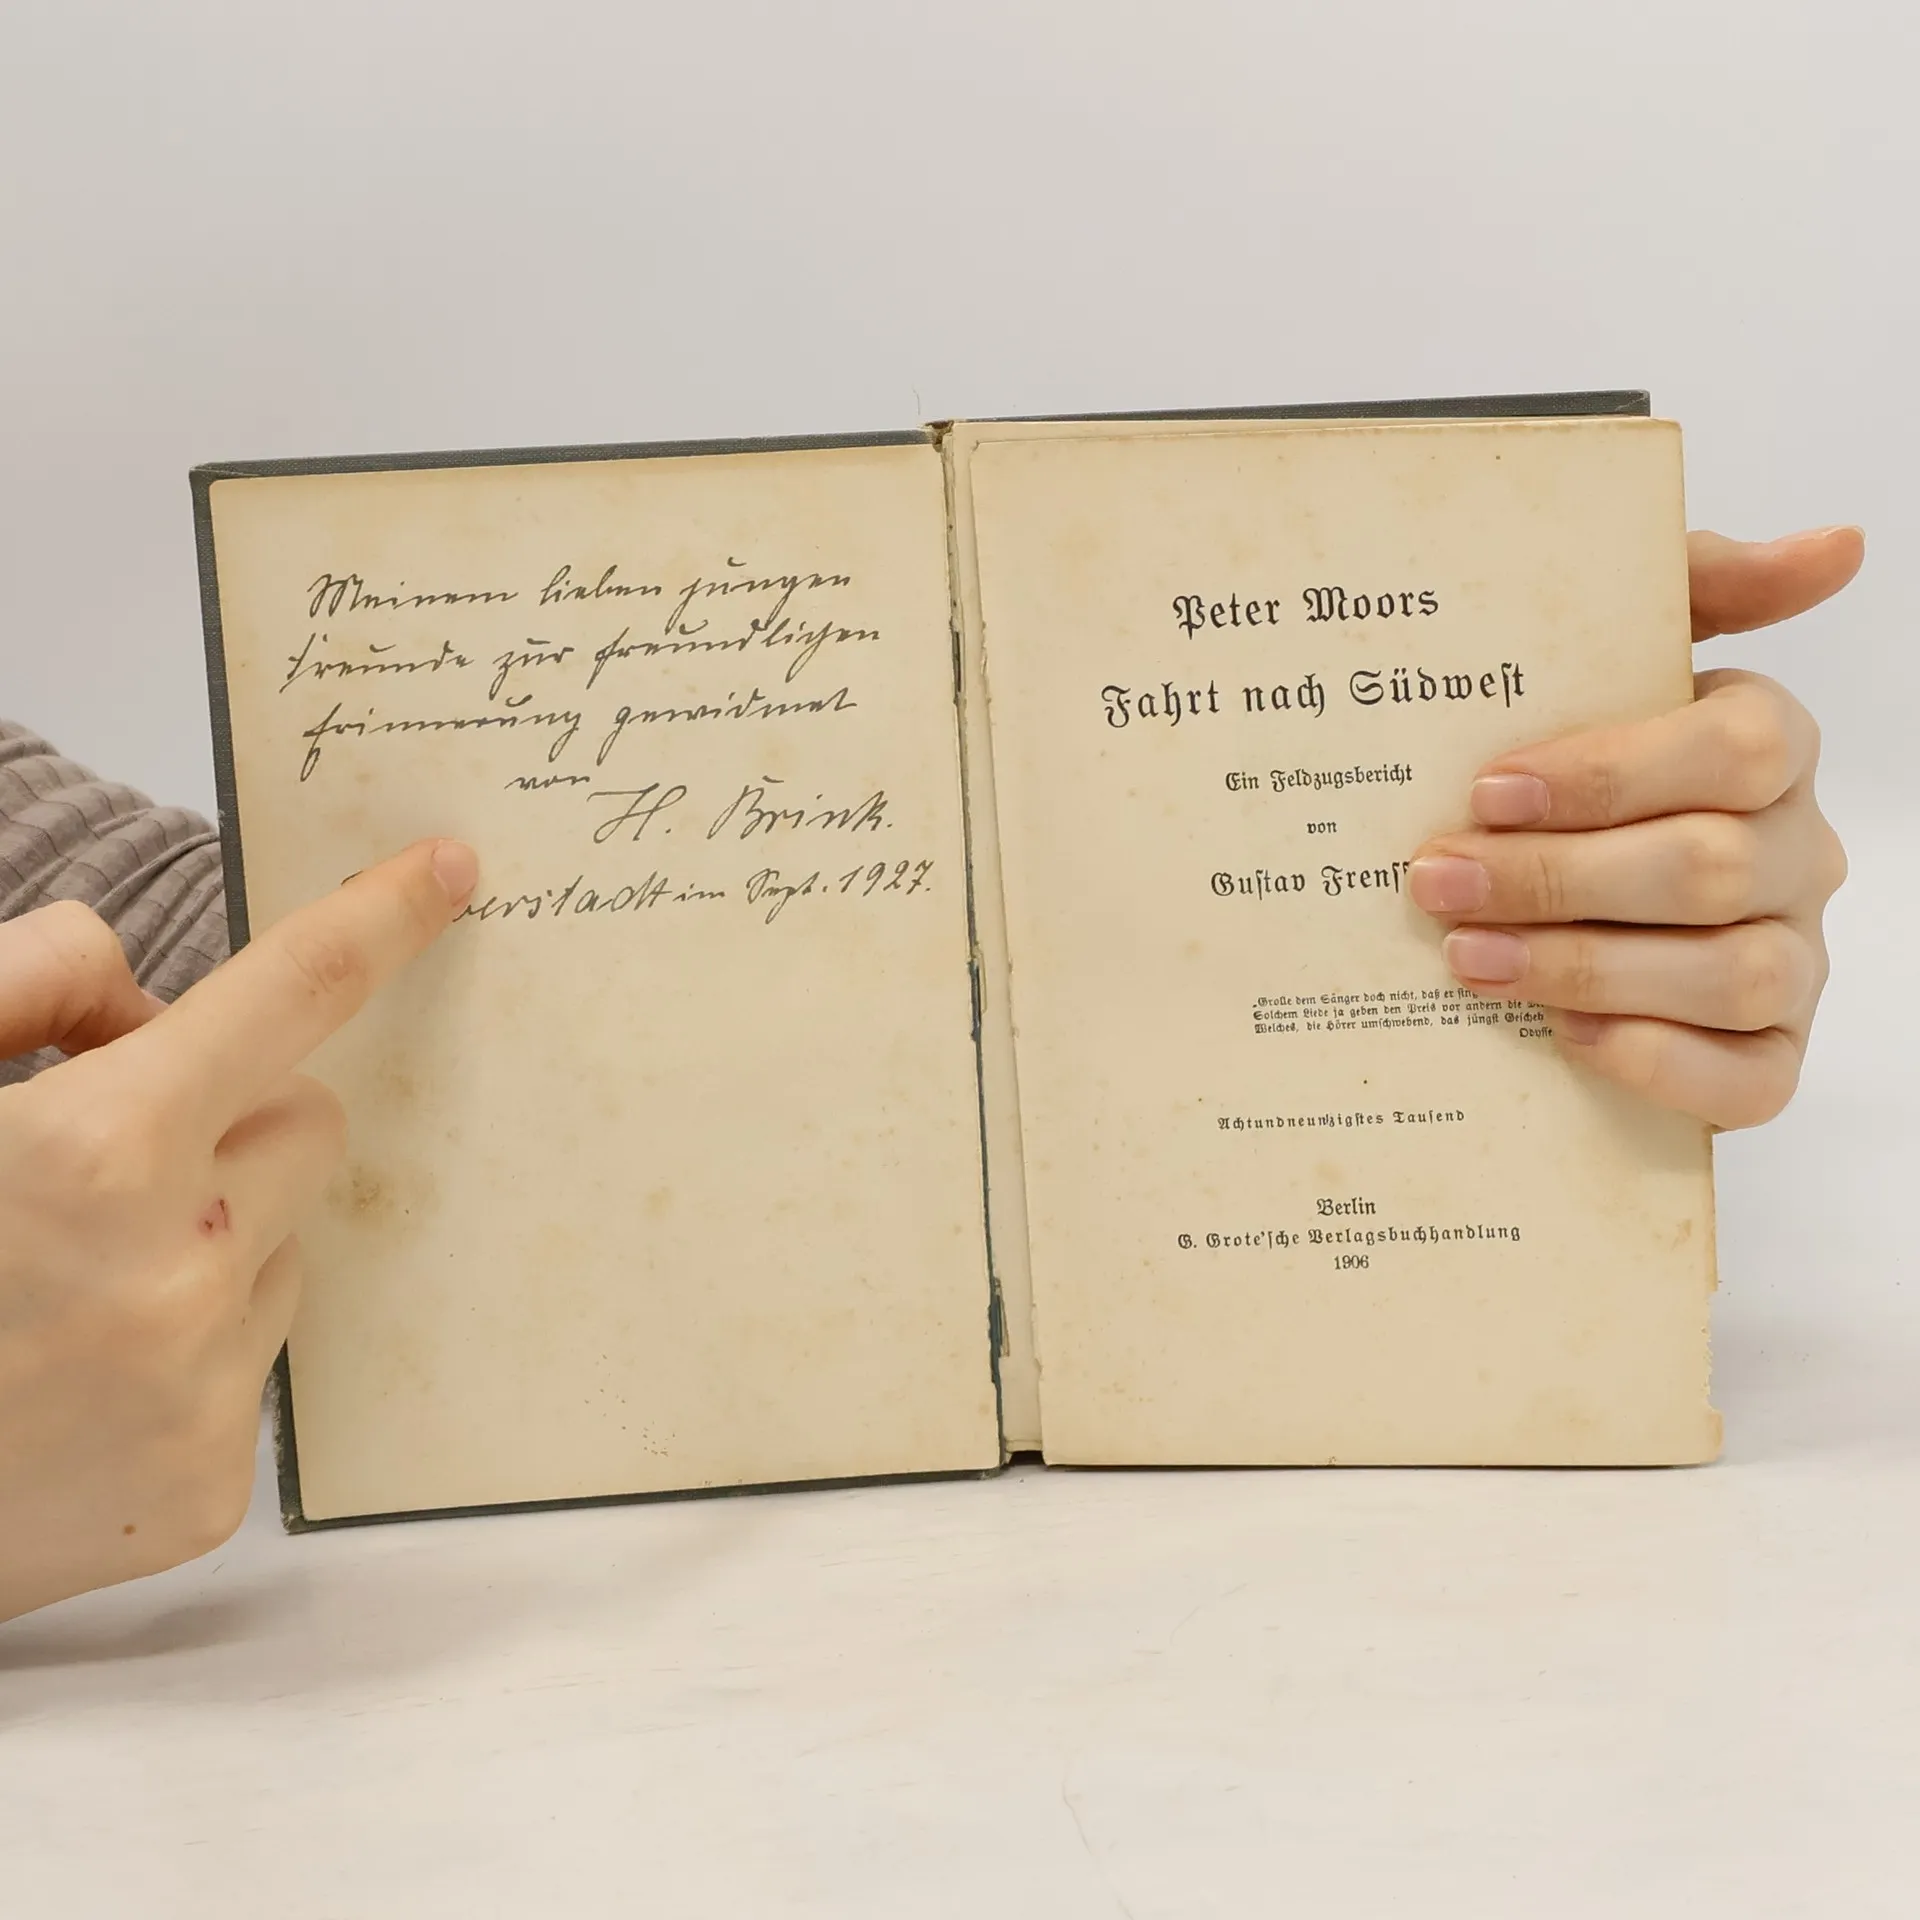 Meinem lieben jungen
Freunde zur freundlichen
Erinnerung gewidmet
von
H. Brink.
im Sept. 1927.
Peter Moors
Fahrt nach Südweſt
Ein Feldzugsbericht
von
Guſtav Frenſſ
„Grolle dem Sänger doch nicht, daß er ſing
Solchem Liede ja geben den Preis vor andern die
Welches, die Hörer umſchwebend, das jüngſt Geſcheh
Odyſſe
Achtundneunzigſtes Tauſend
Berlin
G. Grote'ſche Verlagsbuchhandlung
1906